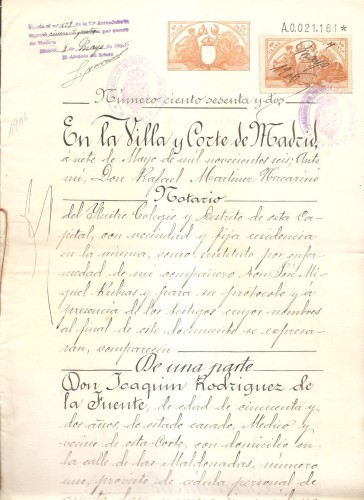 A.0.021.161*
1906
Número ciento sesenta y dos
En la Villa y Corte de Madrid,
á siete de Mayo de mil novecientos seis; Ante
mí, Don Rafael Martinez Nacarino
Notario
del Ilustre Colegio y Distrito de esta Ca-
pital, con vecindad y fija residencia
en la misma, como sustituto por enfer-
medad de mi compañero Don José Mi-
guel Rubias y para su protocolo y á
presencia de los testigos cuyos nombres
al final de este documento se expresa-
rán, comparecen
De una parte
Don Joaquin Rodriguez de
la Fuente, de edad de cincuenta y
dos años, de estado casado, Médico y
vecino de esta Corte, con domicilio en
la calle de las Maldonadas, número
uno, provisto de cédula personal de